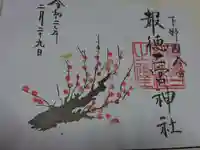 下野国今市
報徳二宮神社
令和二年
二月二十九日